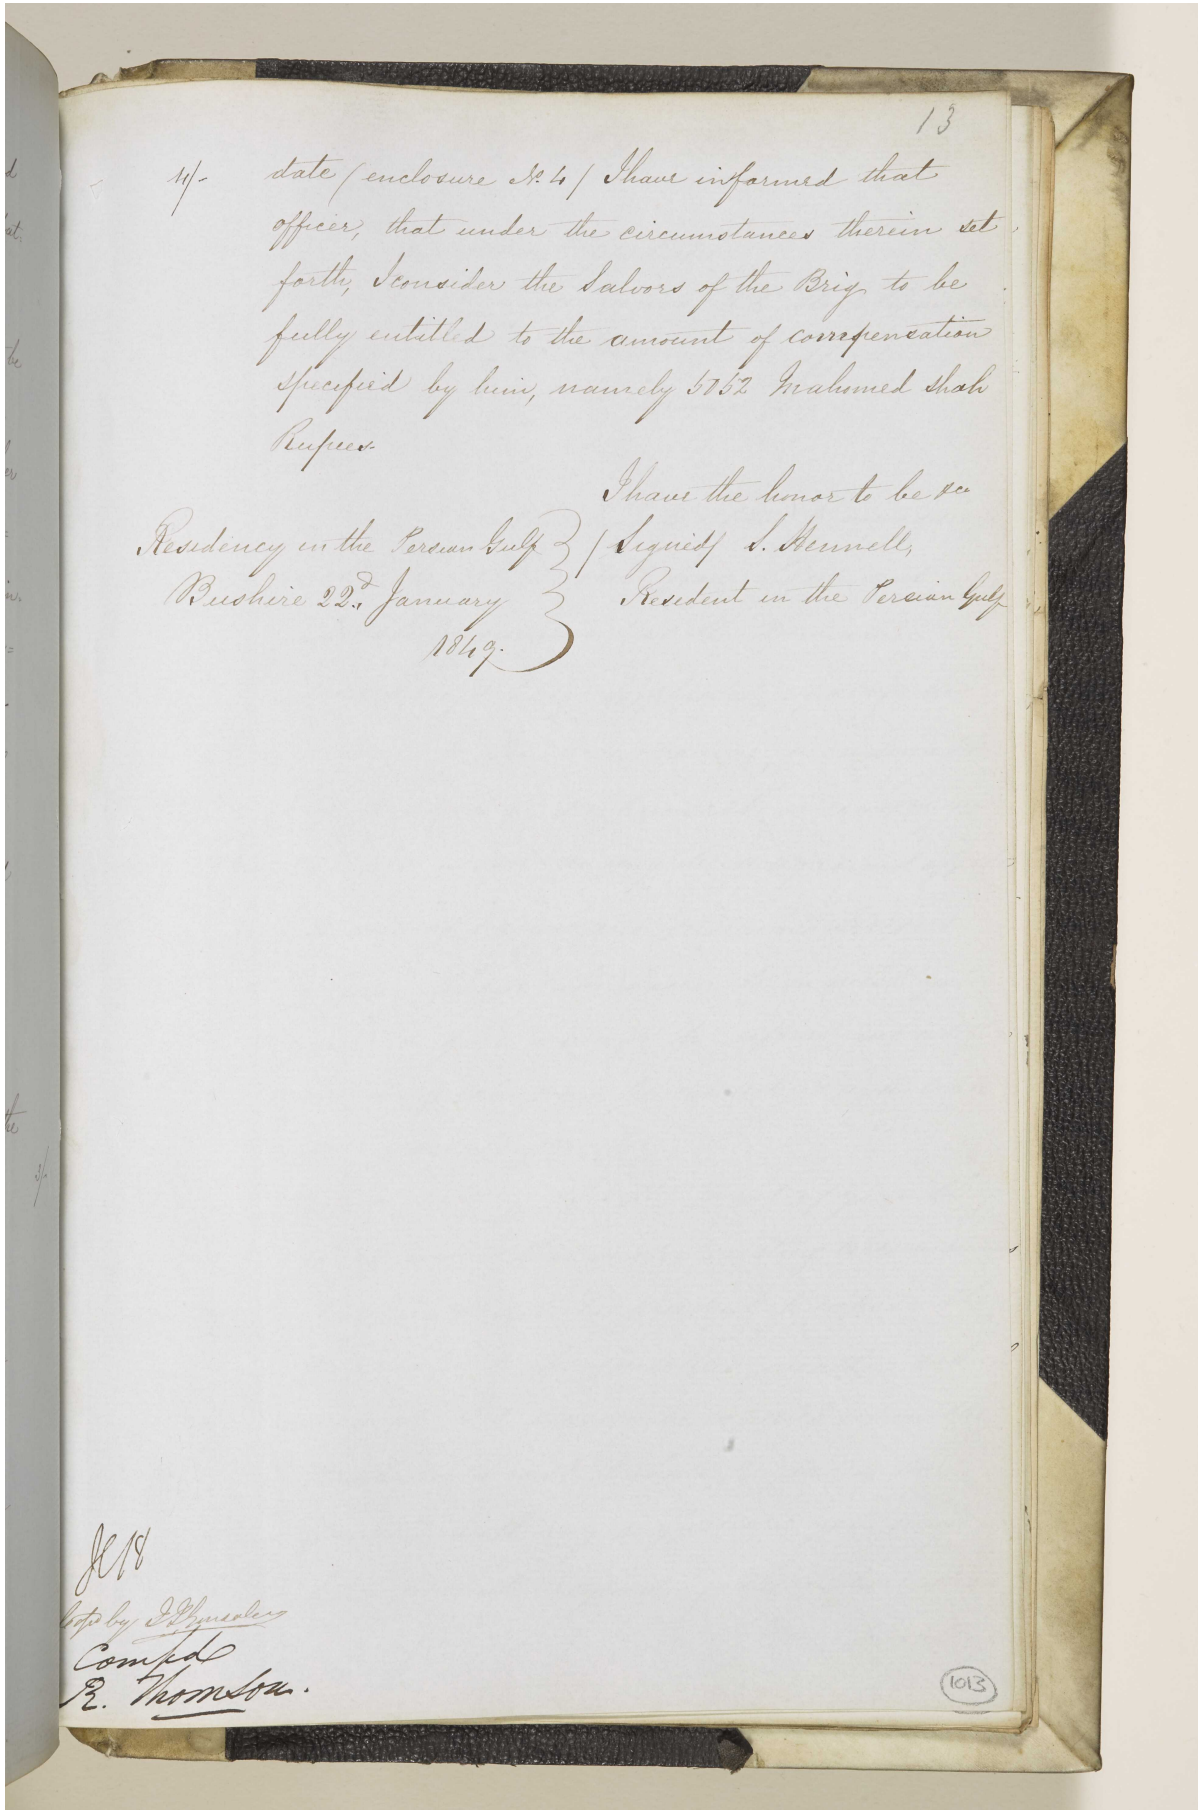 13
4/-
date (enclosure No. 4) I have informed that
officer, that under the circumstances therein set
forth, I consider the Salvors of the Brig to be
fully entitled to the amount of compensation
specified by him, namely 5052 Mahomed Shah
Rupees.
I have the honor to be &ca
Residency in the Persian Gulf
Bushire 22d. January
1849.
(Signed) S. Hennell,
Resident in the Persian Gulf
by
Compd
R. Thomson.
1013